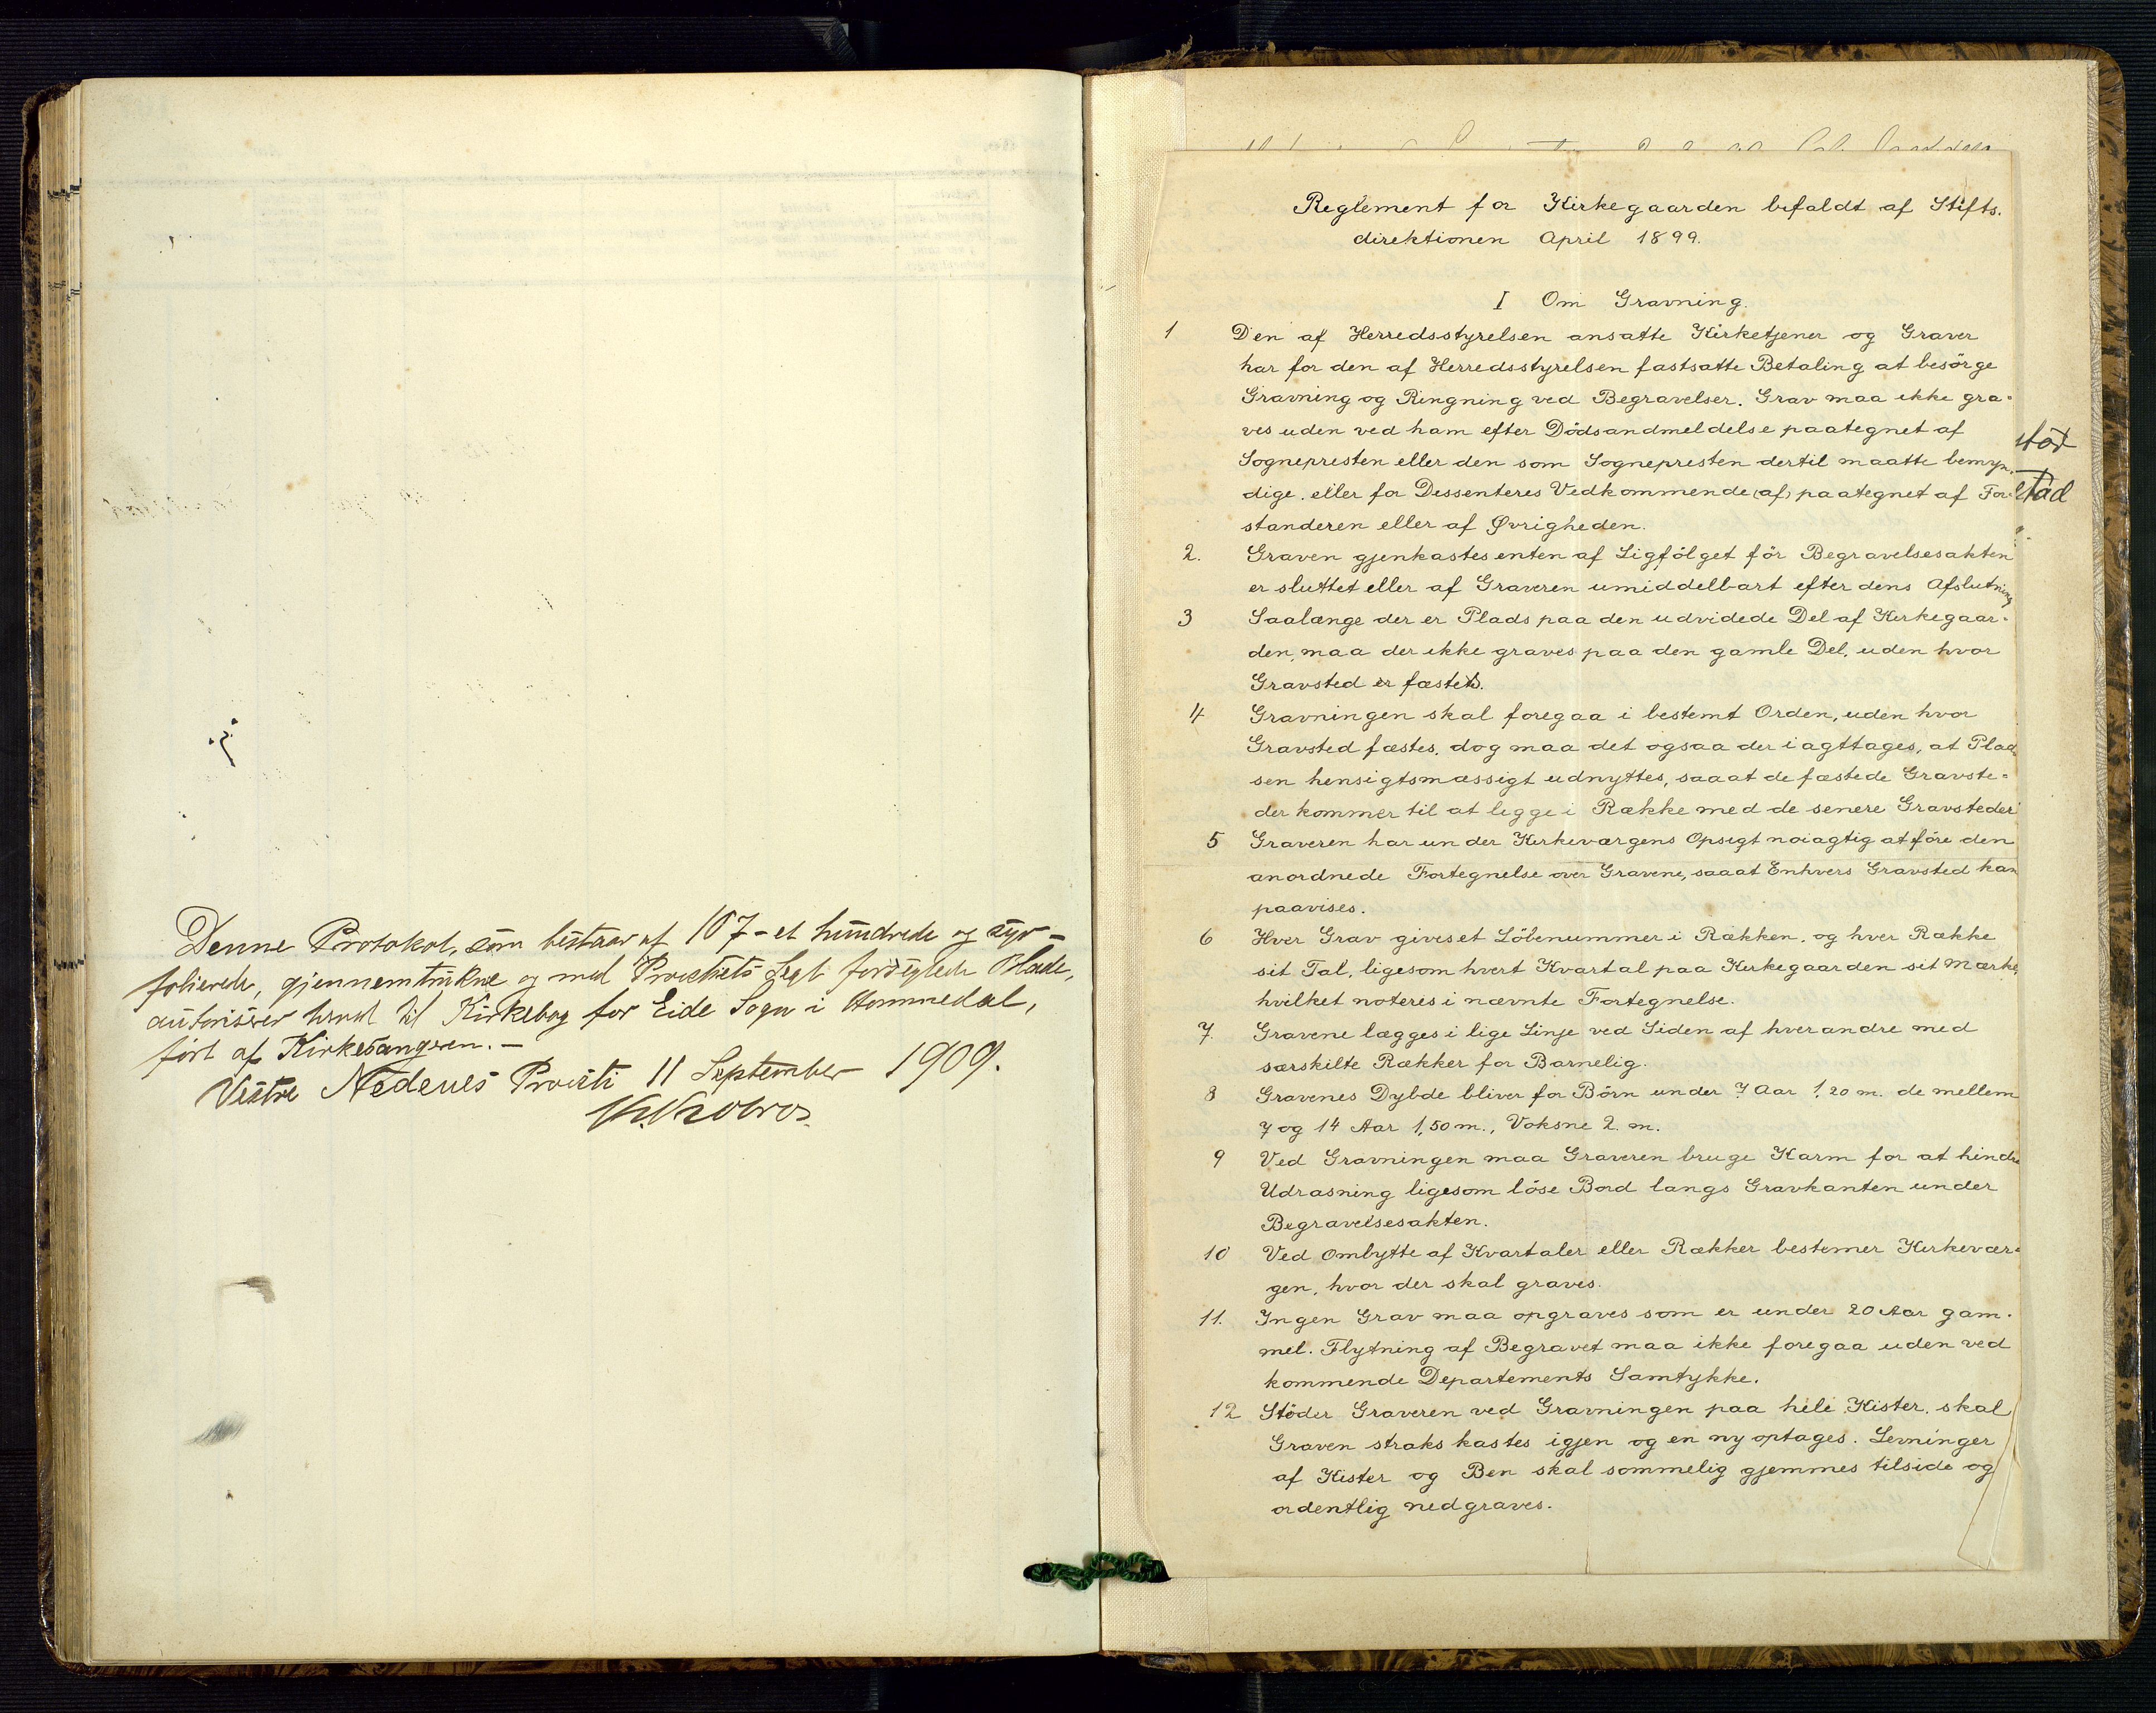 Denne Protokol, som bestaar af 107 - et hundrede og syv -
folierede, gjennemtrukne og med Provstiets Segl forseglede Blade,
autoriseres herved til Kirkebog for Eide Sogn i Hommedal,
ført af Kirkesangeren. -
Vestre Nedenes Provsti 11 September 1909.
Reglement for Kirkegaarden befaldt af Stifts.
direktionen April 1899.
I Om Gravning.
1 Den af Herredsstyrelsen ansatte Kirketjener og Graver
har for den af Herredsstyrelsen fastsatte Betaling at besörge
Gravning og Ringning ved Begravelser. Grav maa ikke gra=
ves uden ved ham efter Dödsandmeldelse paategnet af
Sognepresten eller den som Sognepresten dertil maatte bemyn.
dige. eller for Dessenteres Vedkommende (af) paategnet af For=
standeren eller af Øvrigheden.
2. Graven gjenkastes enten af Ligfölget för Begravelsesakten
er sluttet eller af Graveren umiddelbart efter dens Afslutning
3 Saalænge der er Plads paa den udvidede Del af Kirkegaar=
den, maa der ikke graves paa den gamle Del, uden hvor
Gravsted er fæstet.
4 Gravningen skal foregaa i bestemt Orden, uden hvor
Gravsted fæstes, dog maa det ogsaa der iagttages, at Plad
sen hensigtsmæssigt udnyttes, saaat de fæstede Gravste=
der kommer til at ligge i Række med de senere Gravsteder
5 Graveren har under Kirkeværgens Opsigt nöiagtig at före den
anordnede Fortegnelse over Gravene, saaat Enhvers Gravsted kan
paavises.
6 Hver Grav gives et Löbenummer i Rækken, og hver Række
sit Tal, ligesom hvert Kvartal paa Kirkegaarden sit Mærke,
hvilket noteres i nævnte Fortegnelse.
7. Gravene lægges i lige Linje ved Siden af hverandre med
særskilte Rækker for Barnelig.
8 Gravenes Dybde bliver for Börn under 7 Aar 1,20 m. de mellem
7 og 14 Aar 1,50 m., Voksne 2. m.
9 Ved Gravningen maa Graveren bruge Karm for at hindre
Udrasning ligesom löse Bord langs Gravkanten under
Begravelsesakten.
10 Ved Ombytte af Kvartaler eller Rækker bestemer Kirkevær=
gen, hvor der skal graves.
11. Ingen Grav maa opgraves som er under 20 Aar gam.
mel. Flytning af Begravet maa ikke foregaa uden ved
kommende Departements Samtykke.
12 Stöder Graveren ved Gravningen paa hele Kister, skal
Graven straks kastes igjen og en ny optages. Levninger
af Kister og Ben skal sommelig gjemmes tilside og
ordentlig nedgraves.